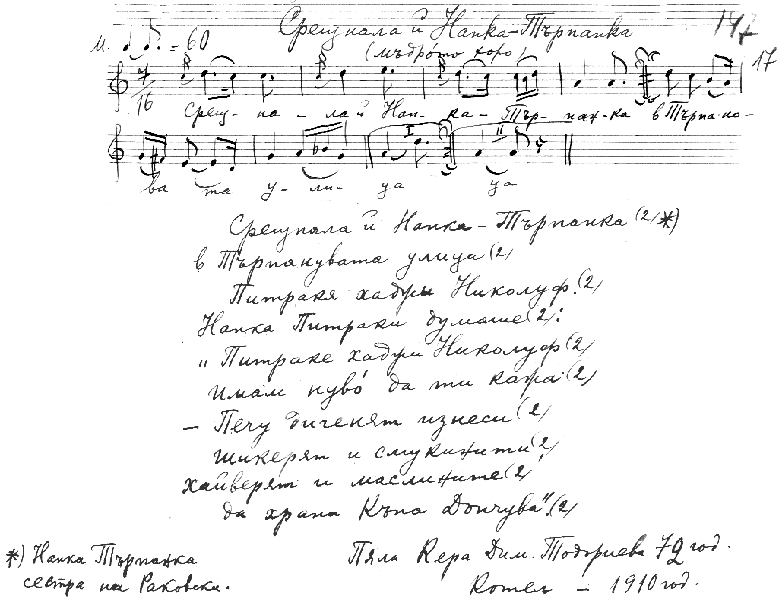 Срещнала й Нанка-Търпанка
147
М. = 60
(мъдрото хоро)
17
7
16
Срещ- на - ла й Нан- ка - Тър- пан-ка в Търпа-но-
I
II
ва та у- ли- ца ца
Срещнала й Нанка - Търпанка (2/*)
в Търпанувата улица (2/
Питракя хаджи Николуф. (2/
Нанка Питраки думаше (2/:
„ Питраке хаджи Николуф (2/
имам нуво́ да ти кажа: (2/
- Печу биченят изнеси (2/
шикерят и смукините (2/
хайверят и маслините (2/
да храна Къна Дончува". (2/
*) Нанка Търпанка
сестра на Раковски.
Пяла Кера Дим. Тодориева 72 год.
Котел - 1910 год.